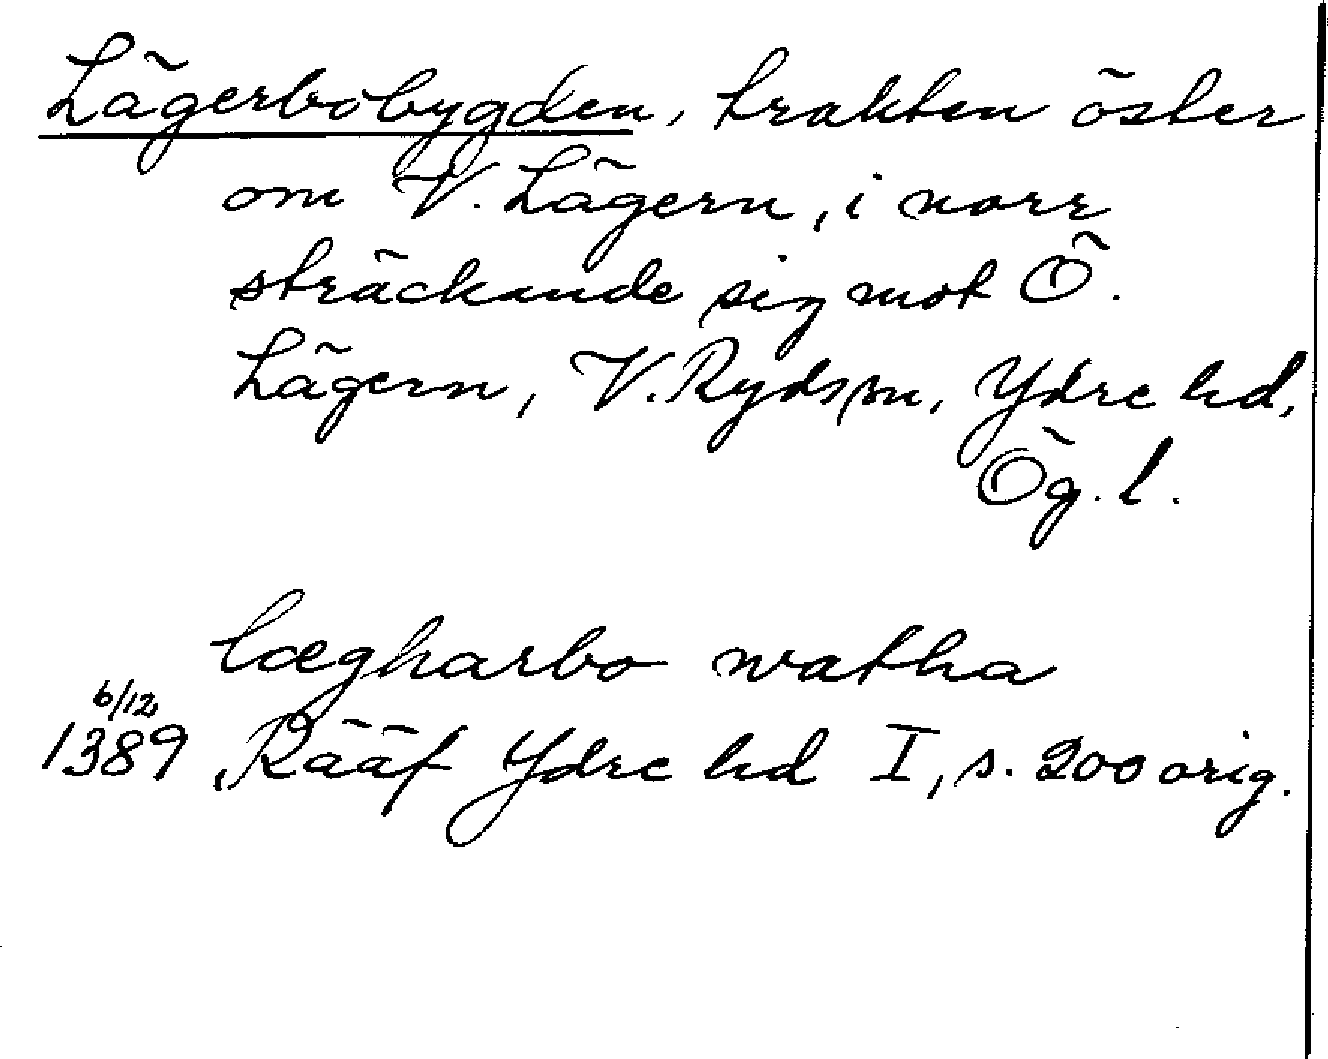 Lägerbobygden, trakten öster
om V. Lägern, i norr
sträckande sig mot Ö.
Lägern, V. Ryds sn, Ydre hd,
Ög. l.
lægharbo watha
6/12
1389 Rääf Ydre hd I, s. 200 orig.